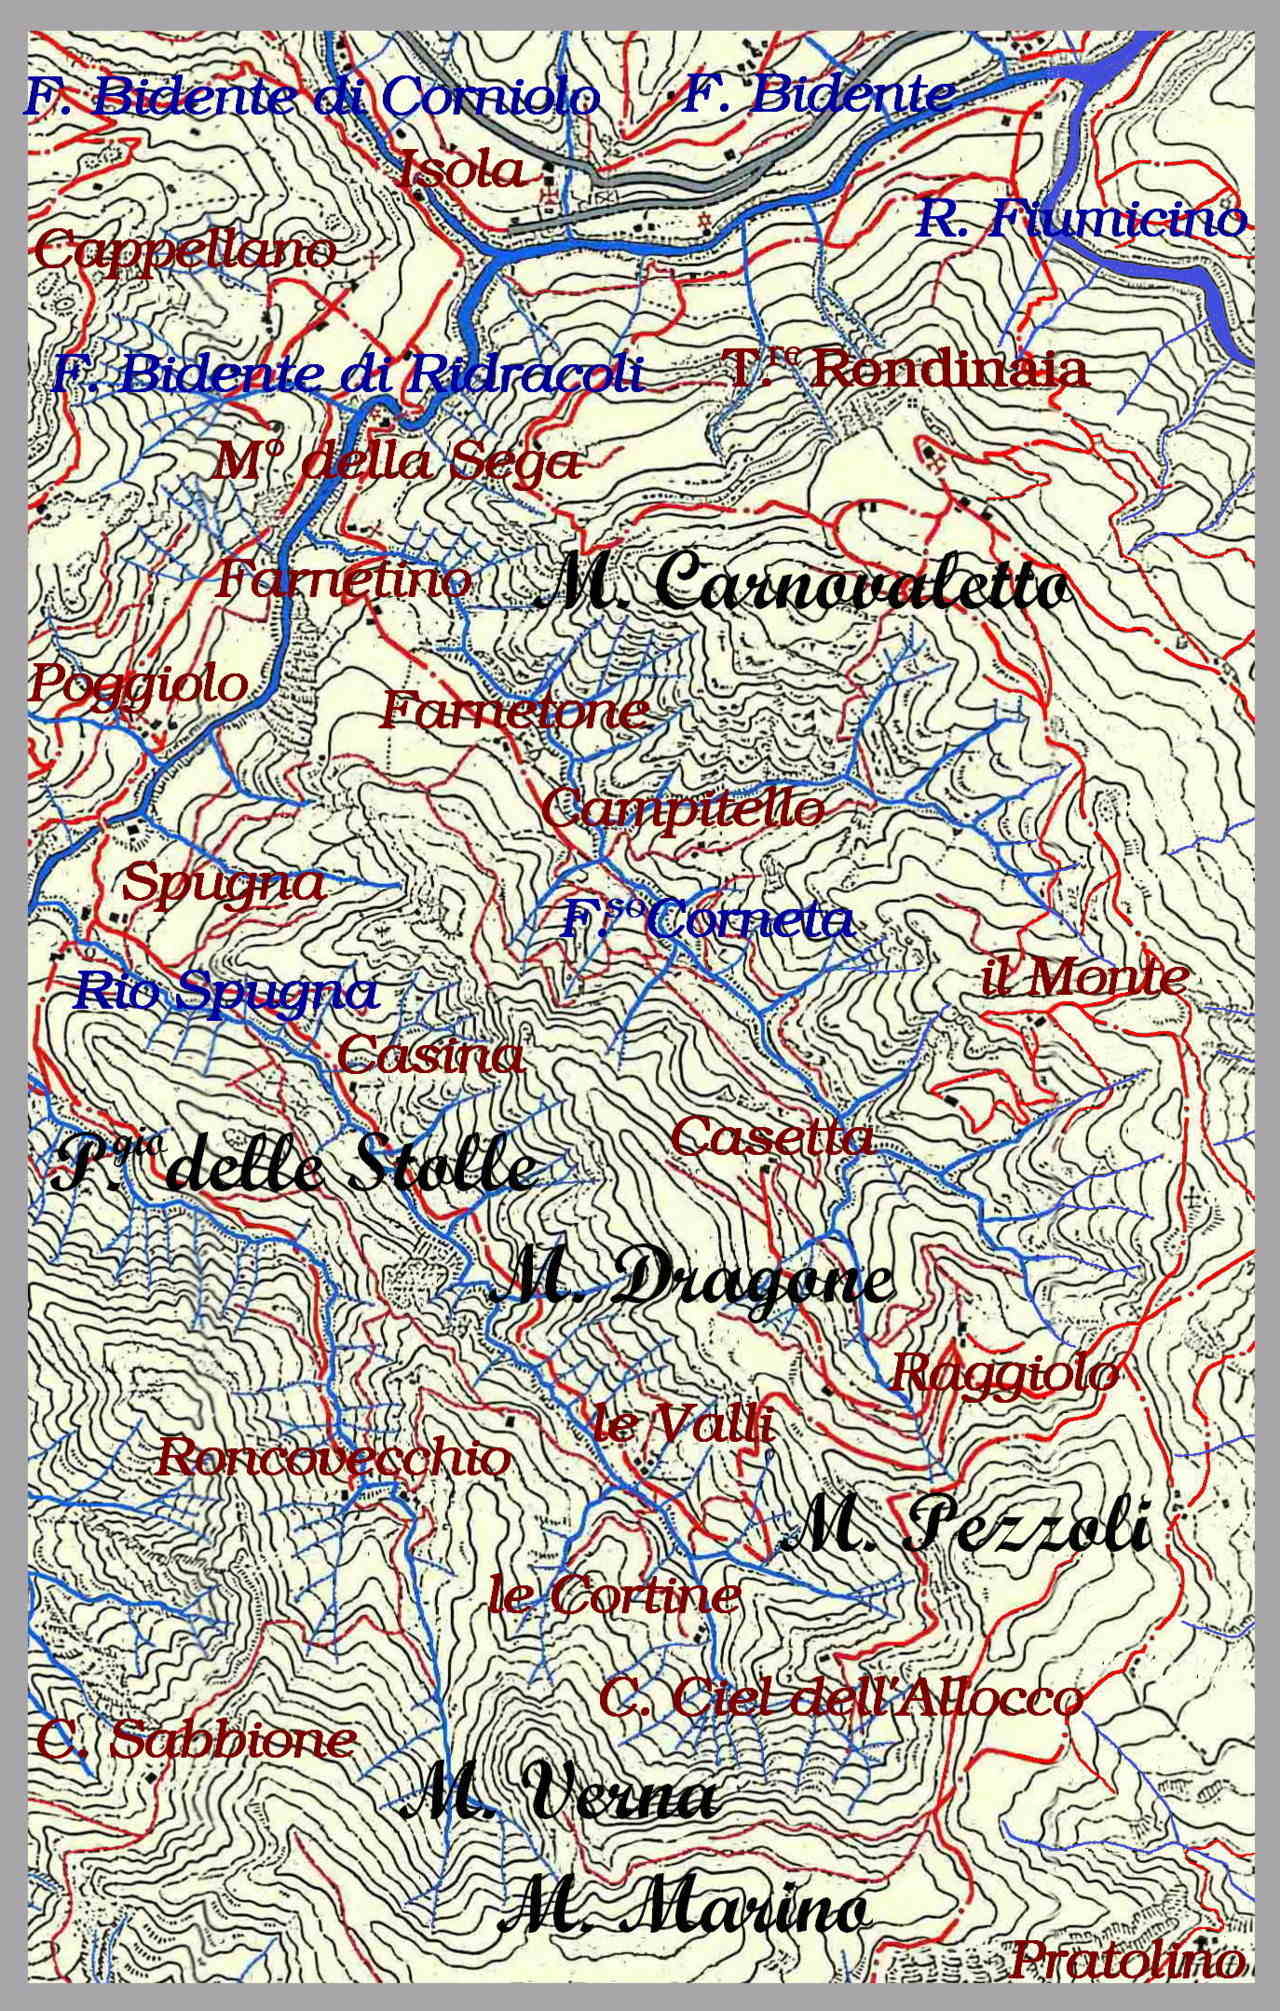 F. Bidente di Corniolo
F. Bidente
Isola
R. Fiumicino
Cappellano
F. Bidente di Ridracoli
T.re Rondinaia
M° della Sega
Farnetino
M. Carnovaletto
Poggiolo
Farnetone
Campitello
Spugna
F.so Corneta
il Monte
Rio Spugna
Casina
Casetta
P.gio delle Stolle
M. Dragone
Raggiolo
le Valli
Roncovecchio
M. Pezzoli
le Cortine
C. Ciel dell'Allocco
C. Sabbione
M. Verna
M. Marino
Pratolino